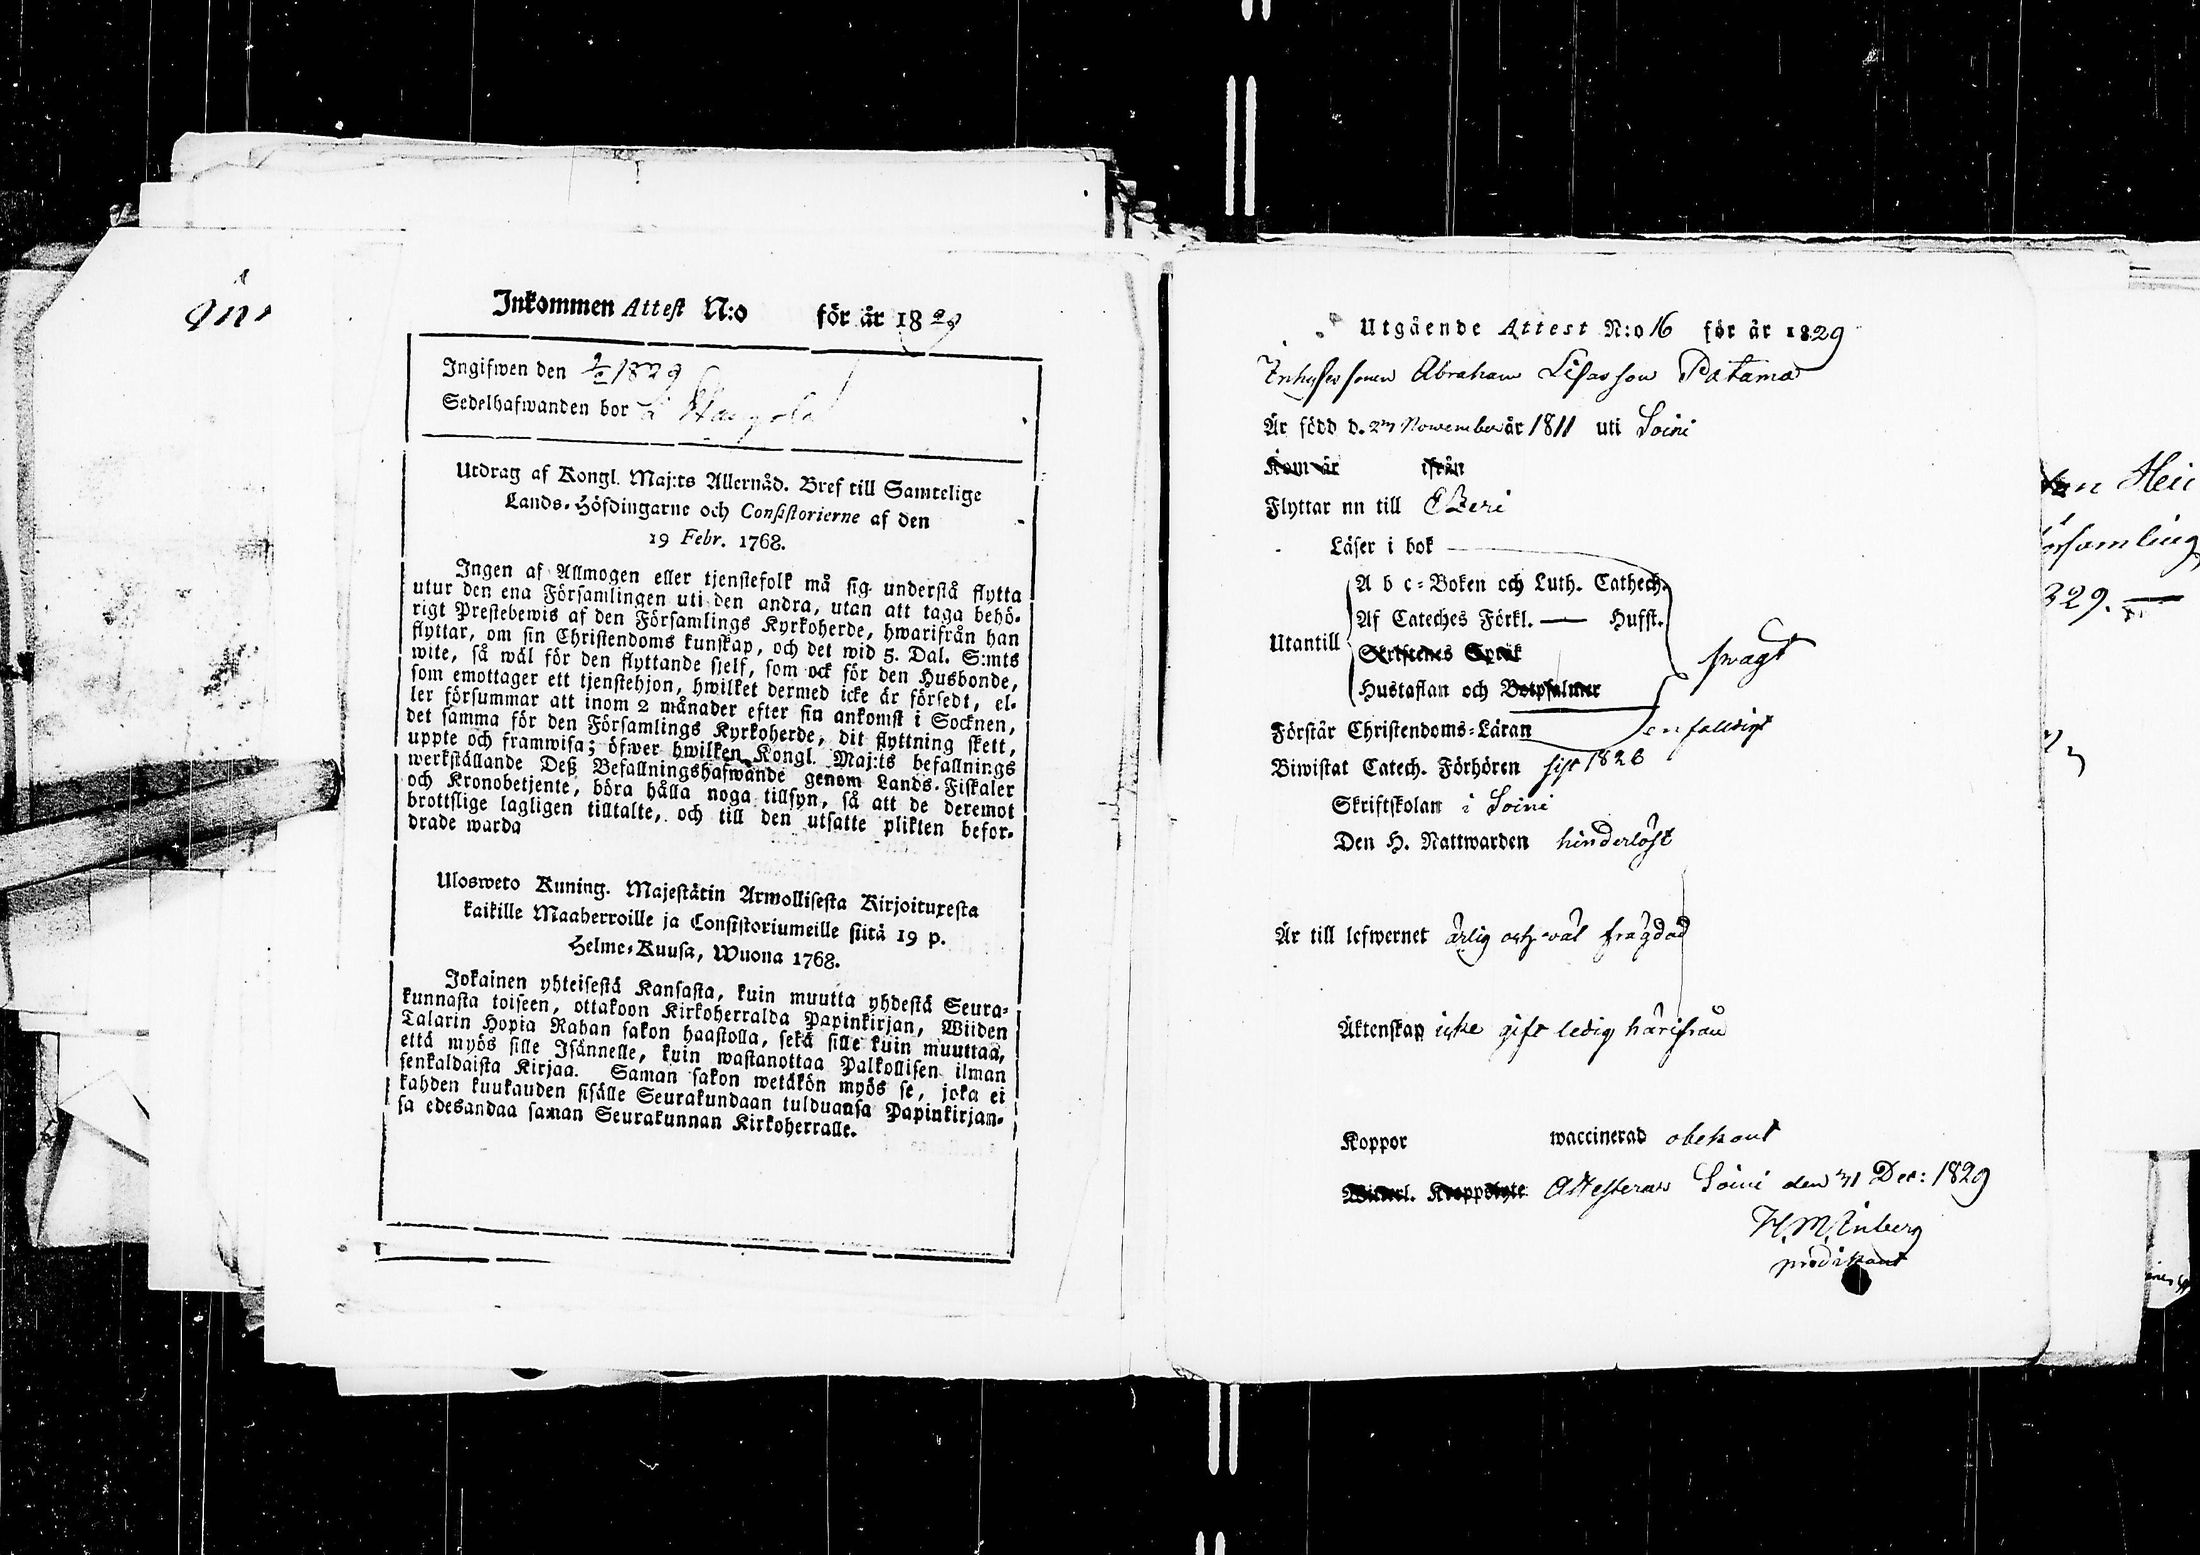 Inkommen Attest N:o för år 1829
Ingifwen den 1829
Sedelhafwanden bor
Utdrag af Kongl. Maj:ts Allernåd. Bref till Samtelige
Lands-Höfdingarne och Consistorierne af den
19 Febr. 1768.
Ingen af Allmogen eller tjenstefolk må sig understå flytta
utur den ena Församlingen uti den andra, utan att taga behö-
rigt Prestebewis af den Församlings Kyrkoherde, hwarifrån han
flyttar, om sin Christendoms kunskap, och det wid 5. Dal. S:mts
wite, så wäl för den flyttande sjelf, som ock för den Husbonde,
som emottager ett tjenstehjon, hwilket dermed icke är försedt, el-
ler försummar att inom 2 månader efter sin ankomst i Socknen,
det samma för den Församlings Kyrkoherde, dit flyttning skett,
uppte och framwisa; öfwer hwilken Kongl. Maj:ts befallnings
werkställande Deß Befallningshafwande genom Lands-Fiskaler
och Kronobetjente, böra hålla noga tillsyn, så att de deremot
brottslige lagligen tilltalte, och till den utsatte plikten befor-
drade warda
Ulosweto Kuning. Majestätin Armollisesta Kirjoituxesta
kaikille Maaherroille ja Consistoriumeille siitä 19 p.
Helme-Kuusa, Wuona 1768.
Jokainen yhteisestä Kansasta, kuin muutta yhdestä Seura-
kunnasta toiseen, ottakoon Kirkoherralda Papinkirjan, Wiiden
Talarin Hopia Rahan sakon haastolla, sekä sille kuin muuttaa,
että myös sille Isännelle, kuin wastanottaa Palkollisen ilman
senkaldaista Kirjaa. Saman sakon wetäkön myös se, joka ei
kahden kuukauden sisälle Seurakundaan tulduansa Papinkirjan-
sa edesandaa saman Seurakunnan Kirkoherralle.
Utgående Attest N:o 16 för år 1829
Inhyses sonen Abraham Lisasson Patama
Är född d. 27 November år 1811 uti Soini
Kom år ifrån
Flyttar nu till Eßeri
Läser i bok
A b c-Boken och Luth. Cathech.
Af Cateches Förkl. — Husst.
Utantill
Skriftenes Språk
swagt
Hustaflan och Botpsalmer
Förstår Christendoms-Läran enfalldigt
Biwistat Catech. Förhören sist 1828
Skriftskolan i Soini
Den H. Nattwarden hinderlöst
Är till lefwernet ärlig och wäl frägdad
Äktenskap icke gift ledig härifrån
Koppor waccinerad obekant
Attesteras Soini den 31 Dec: 1829
H. M. Inberg
prädikant
Hei
örsamling
329.